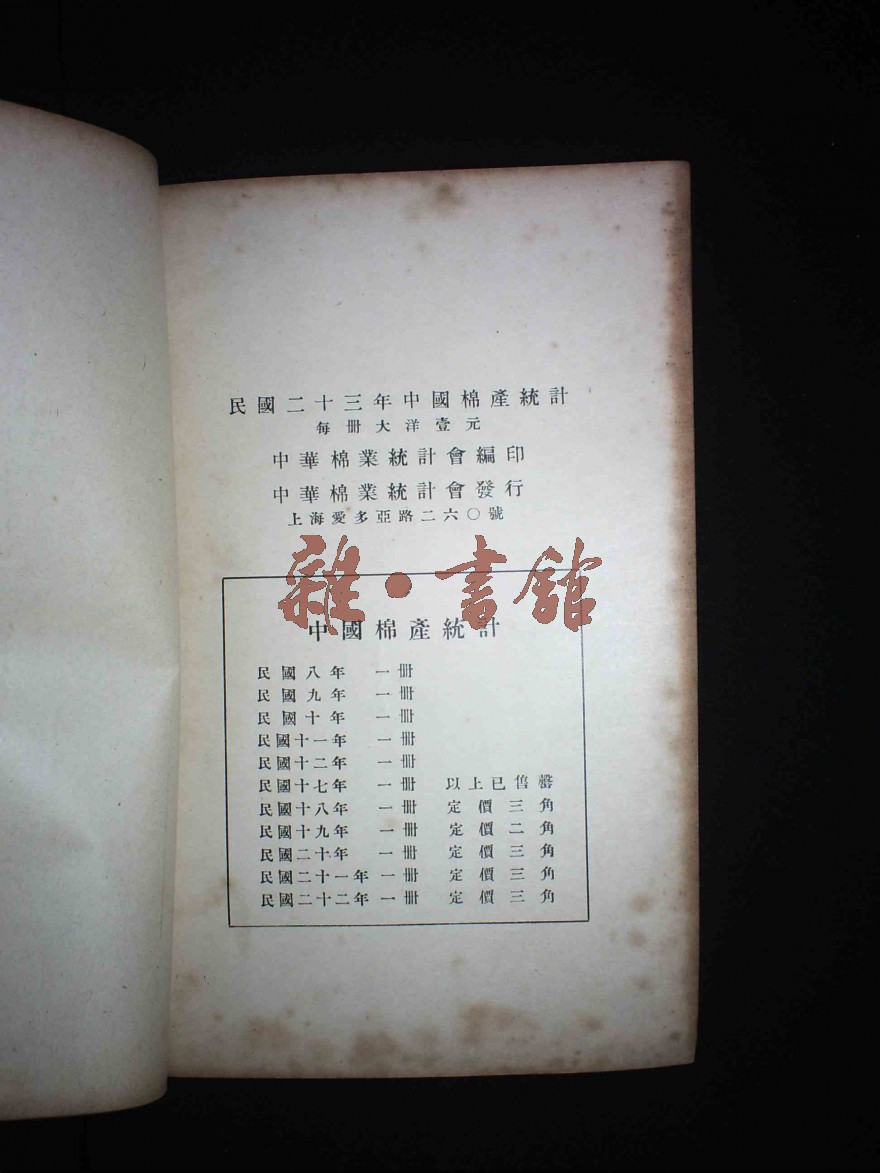 民國二十三年中國棉產統計
每冊大洋壹元
中華棉業統計會編印
中華棉業統計會發行
上海愛多亞路二六〇號
雜·書館
中國棉產統計
民國八年 一冊
民國九年 一冊
民國十年 一冊
民國十一年 一冊
民國十二年 一冊
民國十七年 一冊 以上已售罄
民國十八年 一冊 定價三角
民國十九年 一冊 定價二角
民國二十年 一冊 定價三角
民國二十一年 一冊 定價三角
民國二十二年 一冊 定價三角